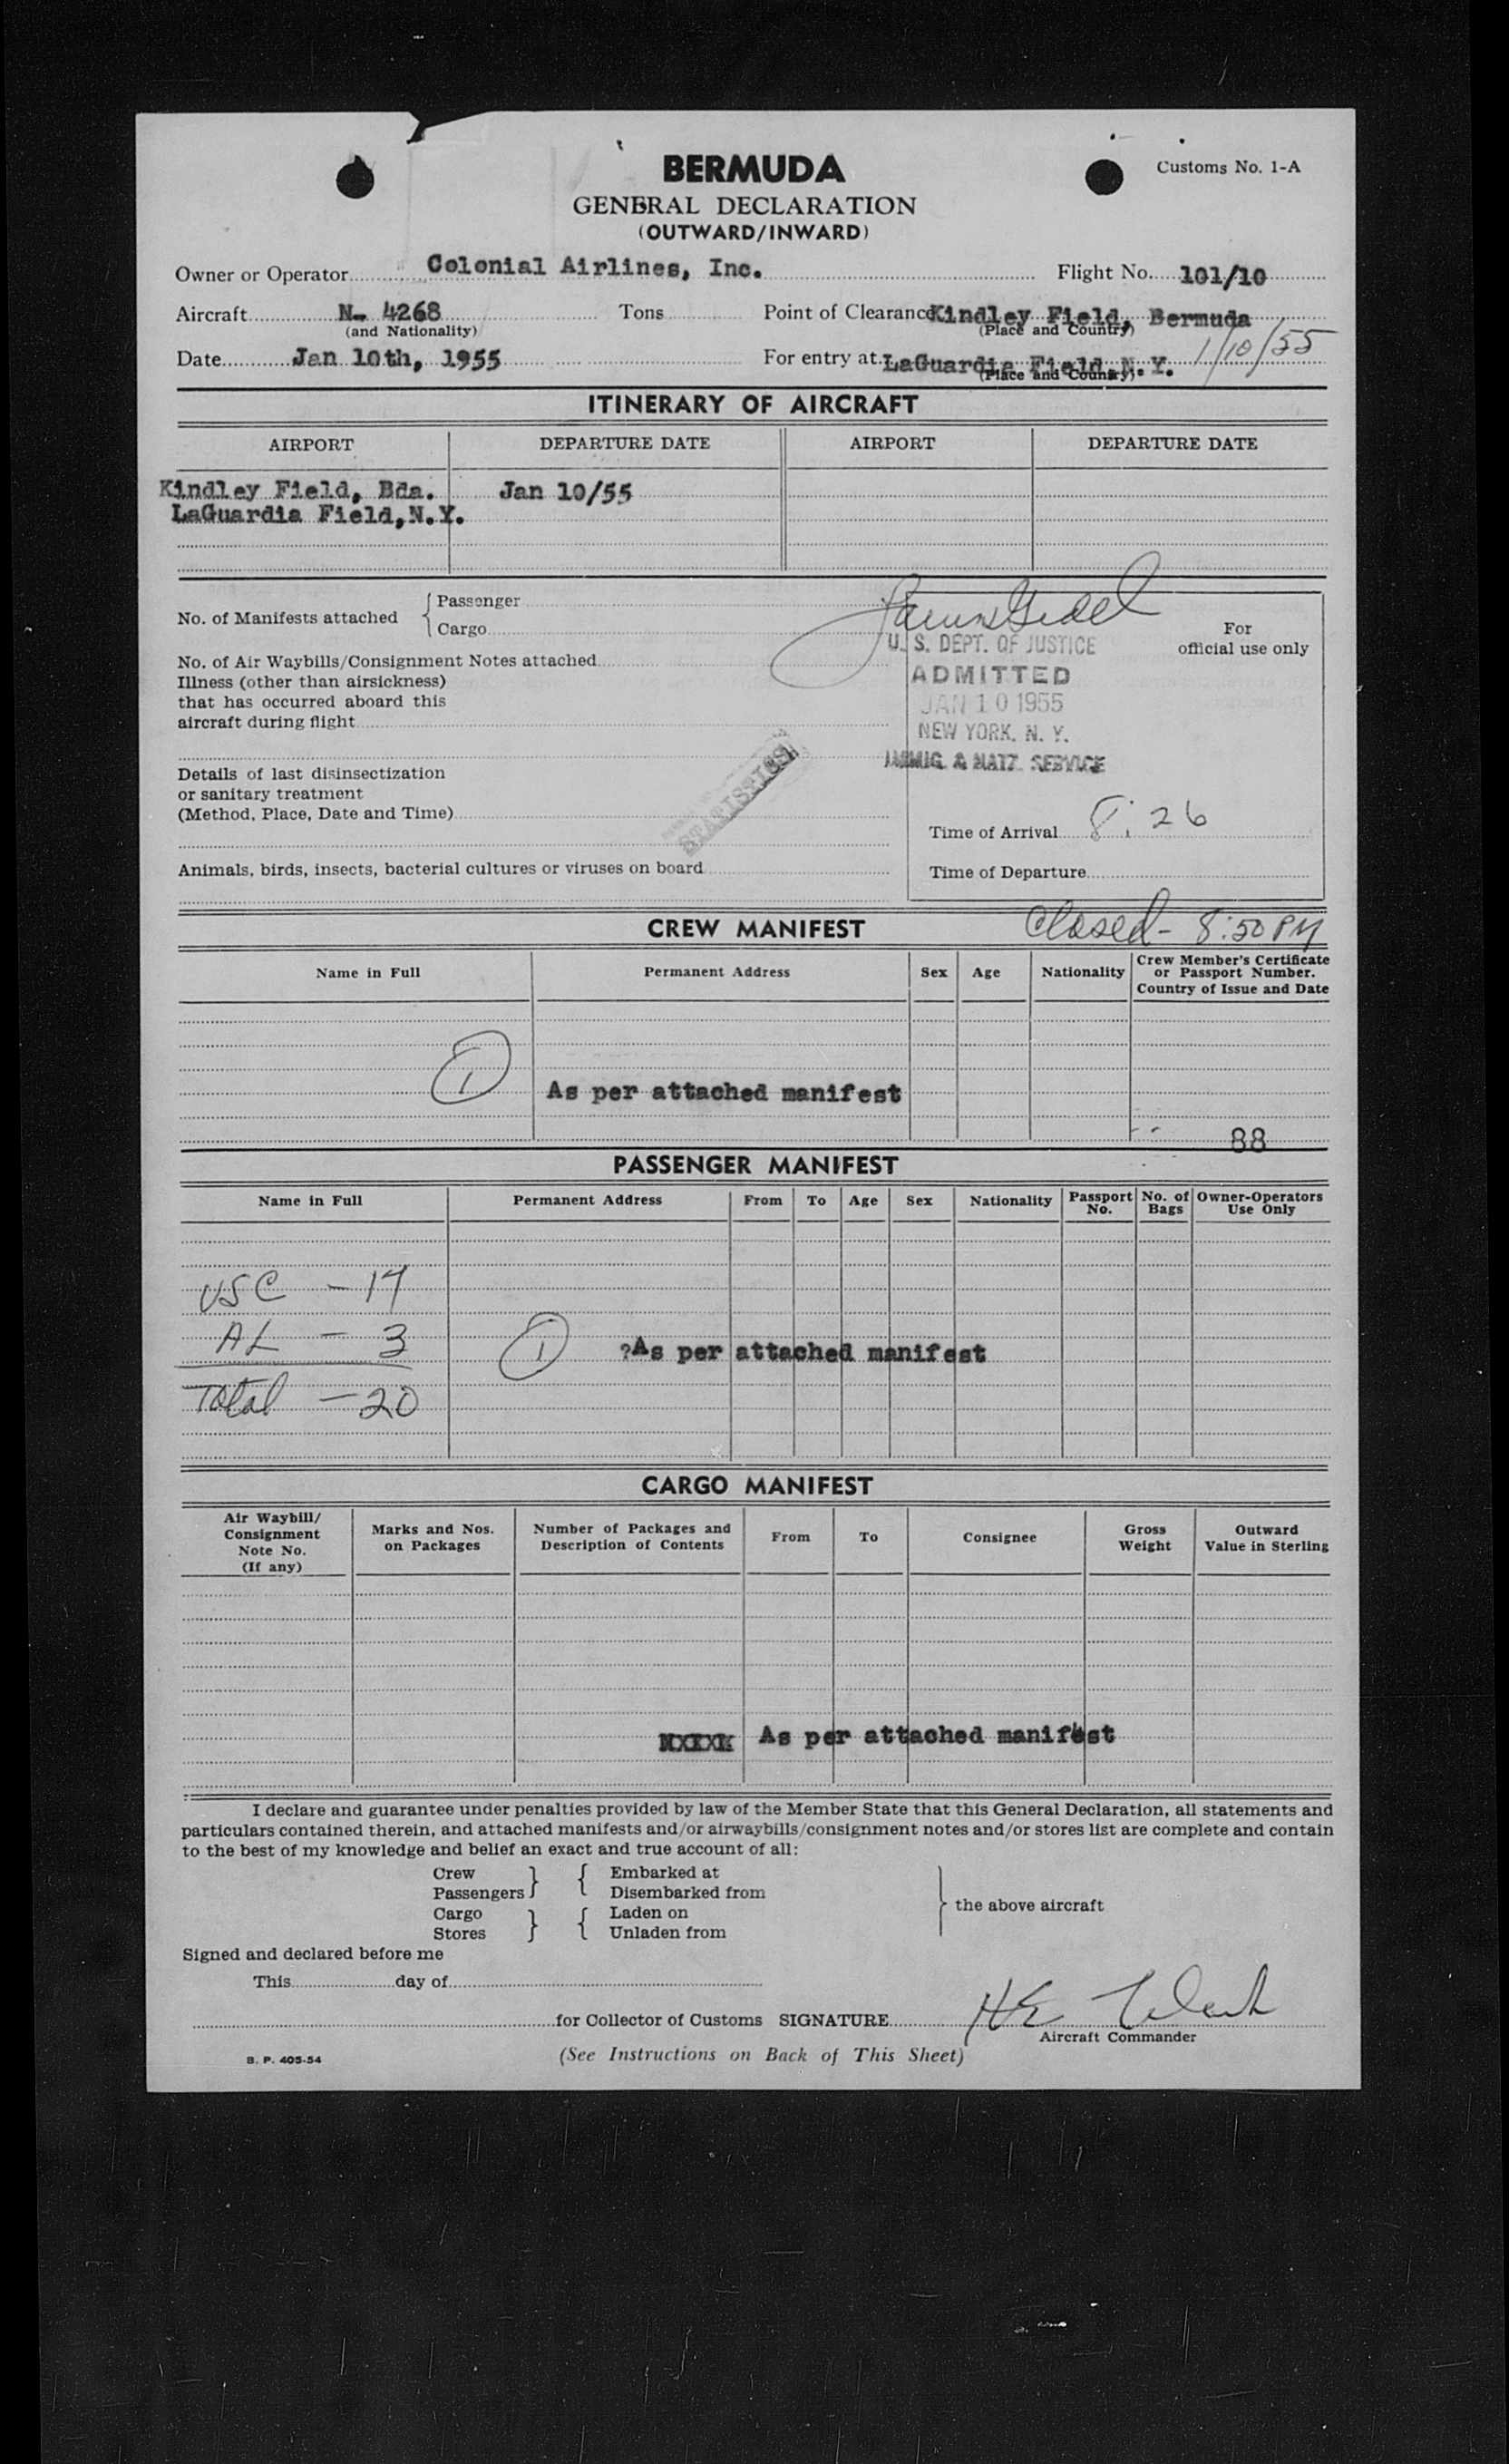 BERMUDA
Customs No. 1-A
GENERAL DECLARATION
(OUTWARD/INWARD)
Owner or Operator Colonial Airlines, Inc. Flight No. 101/10
Aircraft N- 4268 Tons Point of Clearance Kindley Field, Bermuda
(and Nationality) (Place and Country)
Date Jan 10th, 1955 For entry at LaGuardia Field, N.Y. 1/10/55
(Place and Country)
ITINERARY OF AIRCRAFT
AIRPORT DEPARTURE DATE AIRPORT DEPARTURE DATE
Kindley Field, Bda. Jan 10/55
LaGuardia Field, N.Y.
No. of Manifests attached { Passenger
Cargo
For
official use only
U. S. DEPT. OF JUSTICE
ADMITTED
JAN 10 1955
NEW YORK, N. Y.
IMMIG. & NATZ. SERVICE
No. of Air Waybills/Consignment Notes attached
Illness (other than airsickness)
that has occurred aboard this
aircraft during flight
STATISTICS
Details of last disinsectization
or sanitary treatment
(Method, Place, Date and Time)
Time of Arrival 8:26
Animals, birds, insects, bacterial cultures or viruses on board
Time of Departure
CREW MANIFEST
Closed - 8:50 PM
Name in Full Permanent Address Sex Age Nationality Crew Member's Certificate
or Passport Number.
Country of Issue and Date
1 As per attached manifest
88
PASSENGER MANIFEST
Name in Full Permanent Address From To Age Sex Nationality Passport No. No. of Bags Owner-Operators Use Only
USC - 17
AL - 3
1 ?As per attached manifest
Total - 20
CARGO MANIFEST
Air Waybill/
Consignment
Note No.
(If any)
Marks and Nos.
on Packages
Number of Packages and
Description of Contents
From To Consignee
Gross
Weight
Outward
Value in Sterling
As per attached manifest
I declare and guarantee under penalties provided by law of the Member State that this General Declaration, all statements and
particulars contained therein, and attached manifests and/or airwaybills/consignment notes and/or stores list are complete and contain
to the best of my knowledge and belief an exact and true account of all:
Crew Embarked at
Passengers Disembarked from
Cargo Laden on
Stores Unladen from
the above aircraft
Signed and declared before me
This day of
for Collector of Customs SIGNATURE
Aircraft Commander
B. P. 405-54
(See Instructions on Back of This Sheet)